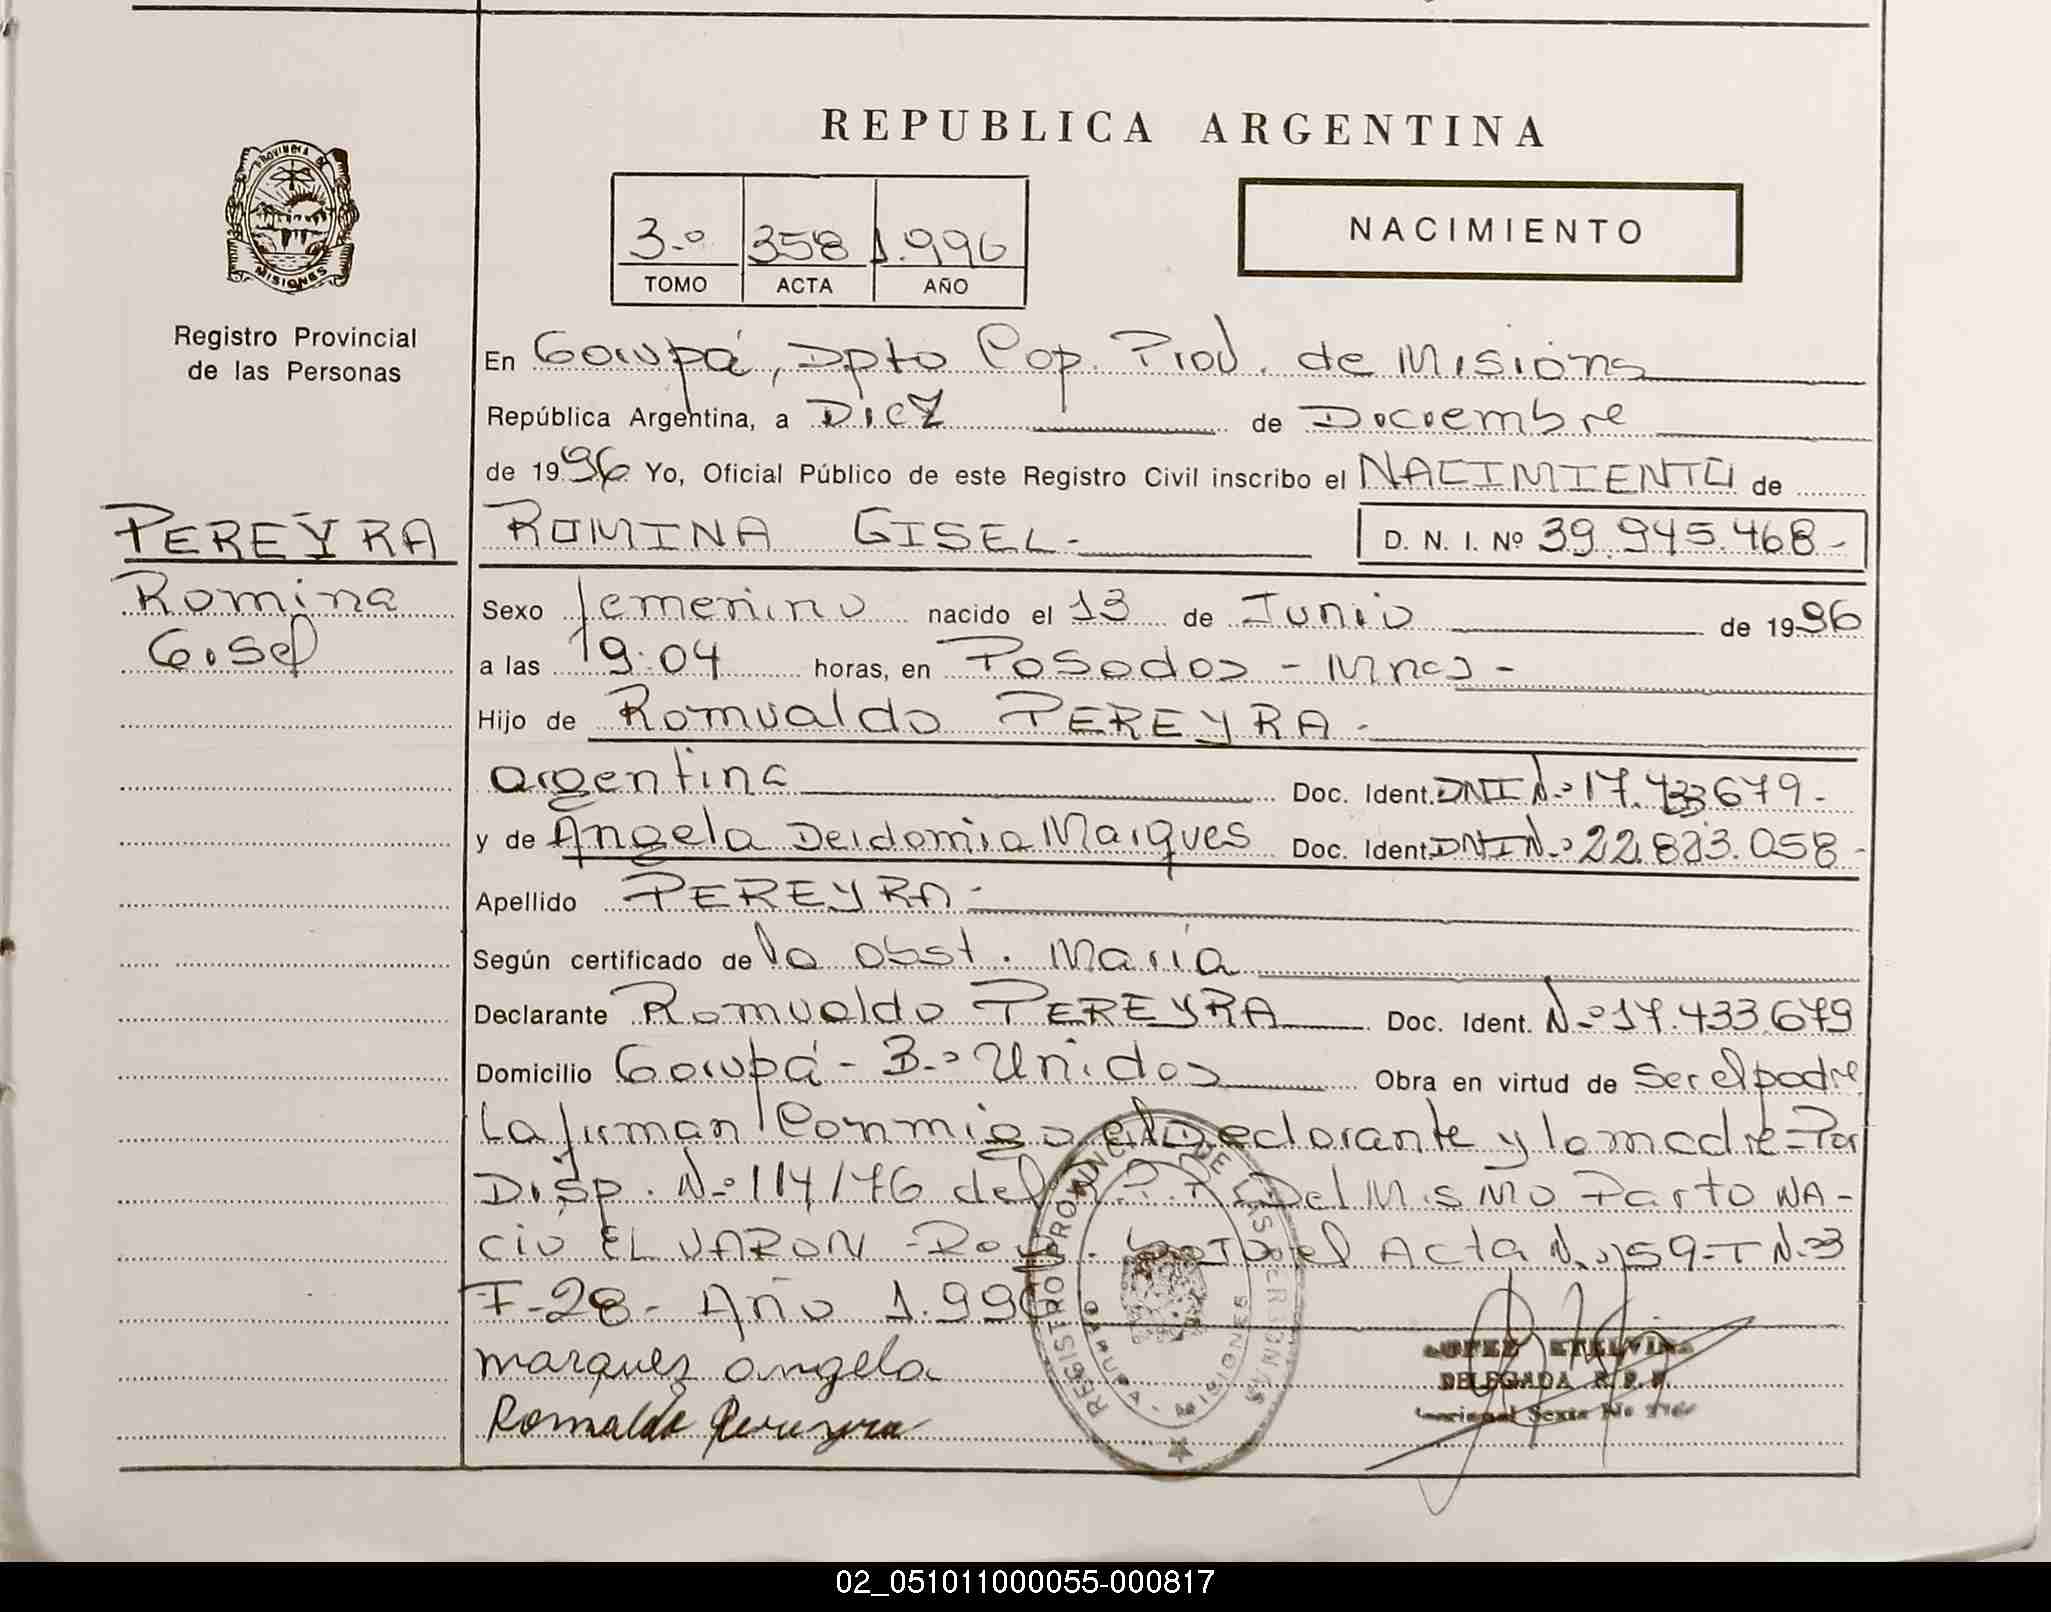 REPUBLICA ARGENTINA
PROVINCIA DE MISIONES
Registro Provincial
de las Personas
3.º 358 1.996
TOMO ACTA AÑO
NACIMIENTO
En Garupá, Dpto Cap. Prov. de Misions
República Argentina, a Diez de Diciembre
de 1996 Yo, Oficial Público de este Registro Civil inscribo el NACIMIENTO de
PEREYRA
Romina
Gisel
ROMINA GISEL.- D. N. I. Nº 39.945.468-
Sexo femenino nacido el 13 de Junio de 1996
a las 19:04 horas, en Posadas - Mnes -
Hijo de Romualdo PEREYRA -
argentina Doc. Ident. DNI N.º 17.433679-
y de Angela Deidamia Marques Doc. Ident. DNI N.º 22.823.058-
Apellido PEREYRA -
Según certificado de la obst. Maria
Declarante Romualdo PEREYRA Doc. Ident. N.º 17.433.679
Domicilio Garupá - B.º Unidos Obra en virtud de ser el padre
La firman Conmigo el Declarante y la madre - Por
Disp. N.º 114/76 del R.P.P. Del Mismo Parto NA-
ció EL VARON Acta N.º 159-T N.º3
F-28- Año 1.996
marquez angela
Romaldo Pereyra
REGISTRO PROVINCIAL DE LAS PERSONAS
GARUPA - MISIONES
LOPEZ ETELVINA
DELEGADA R.P.P.
02_051011000055-000817